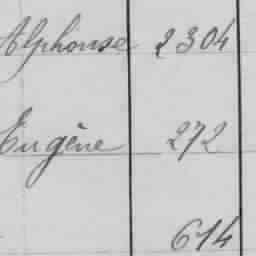 Alphonse 2304
Eugène 272
614